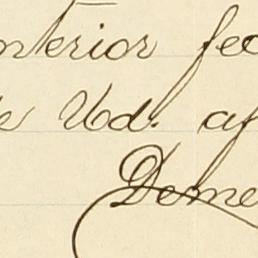 nterior fec
e Ud. af
Deme